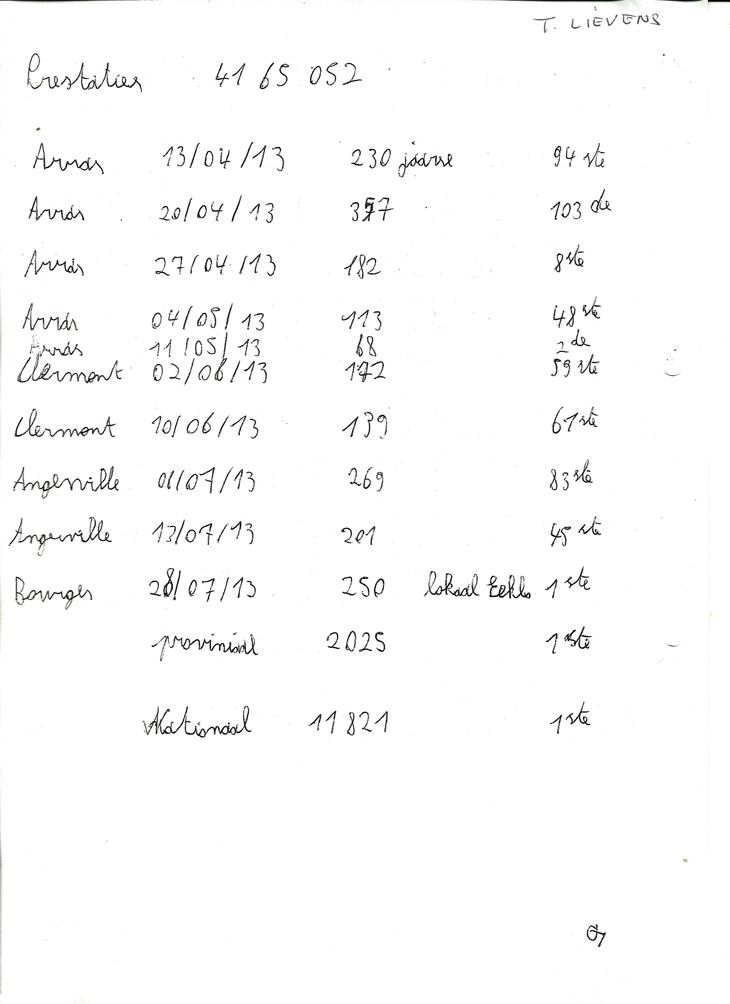 T. LIEVENS
Prestaties 41 65 052
Arras 13/04/13 230 jaarse 94 ste
Arras 20/04/13 377 103 de
Arras 27/04/13 182 8ste
Arras 04/05/13 113 48 ste
Arras 11/05/13 68 2 de
Clermont 02/06/13 172 59 ste
Clermont 10/06/13 139 61 ste
Angerville 01/07/13 269 83 ste
Angerville 13/07/13 201 45 ste
Bourges 28/07/13 250 lokaal Eeklo 1 ste
provinciaal 2025 1 ste
Nationaal 11821 1 ste